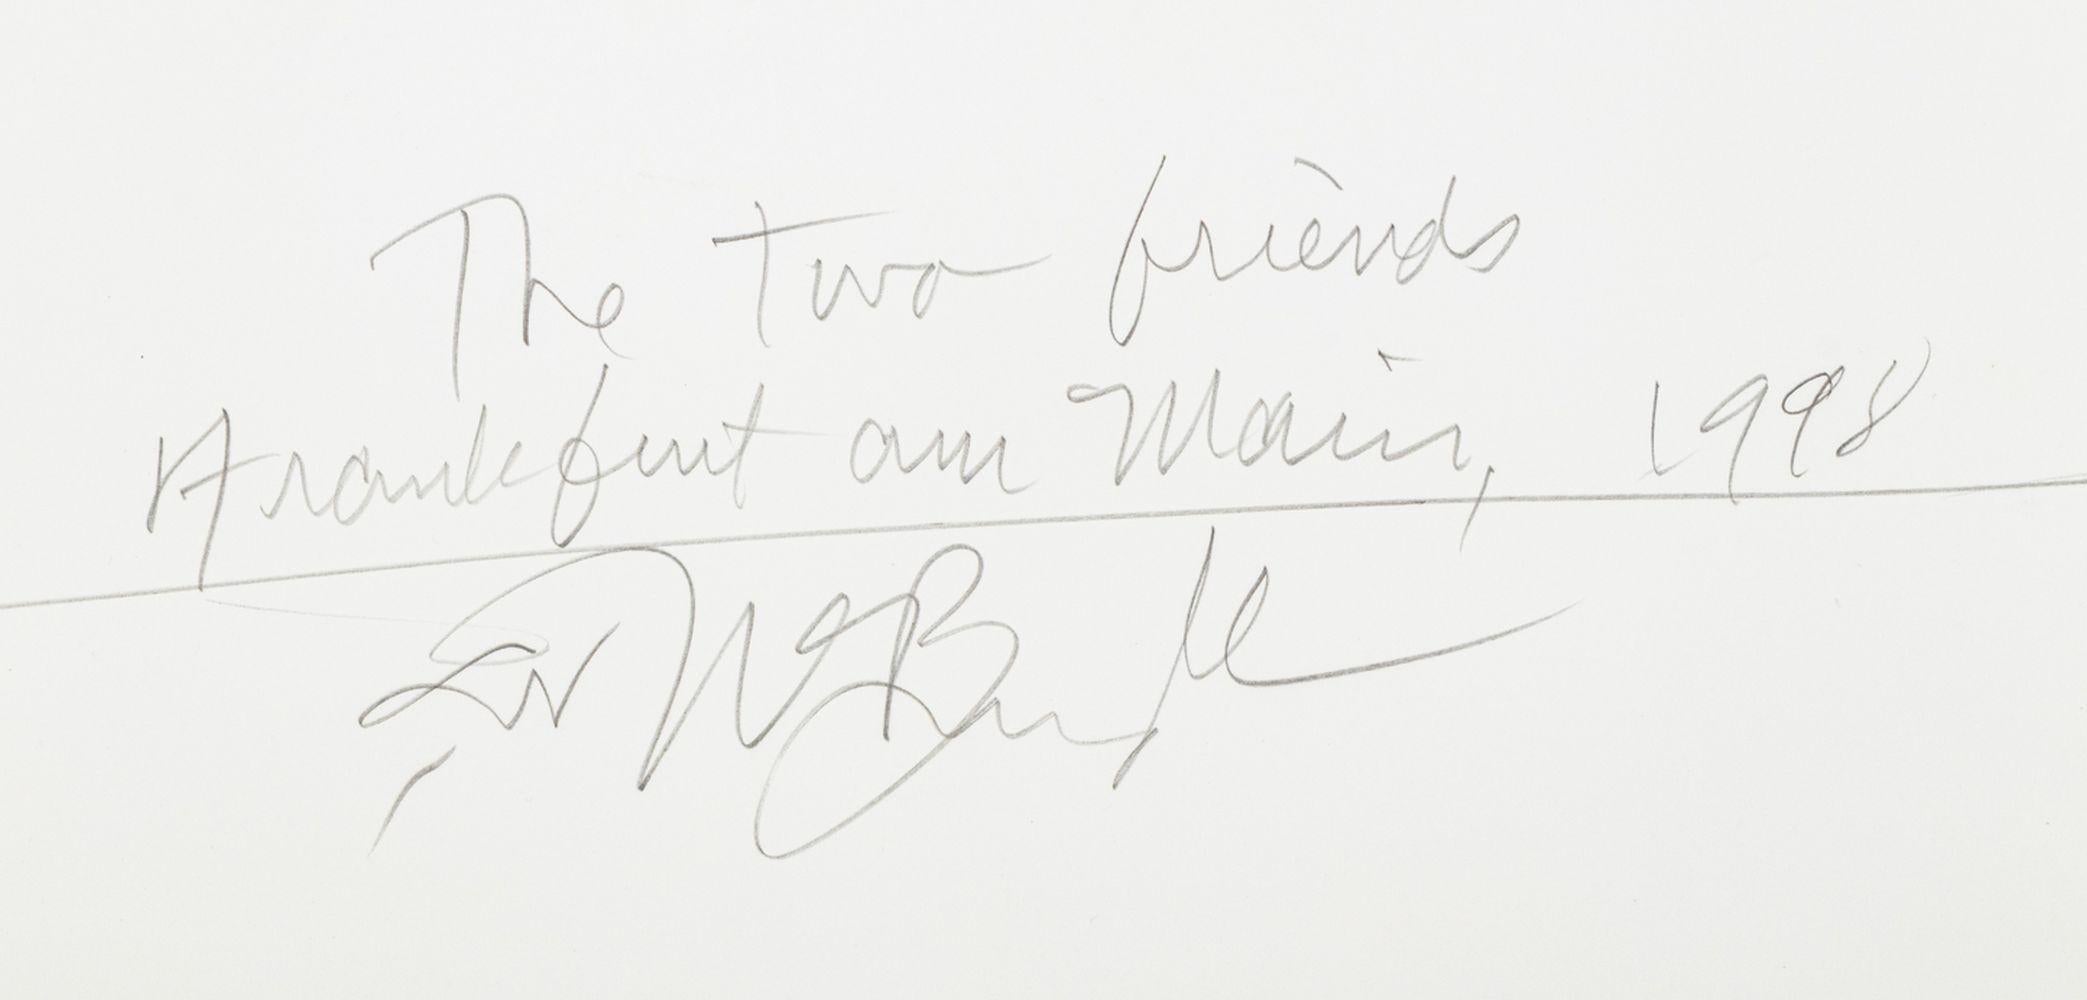 The two friends
Frankfurt am Main, 1998